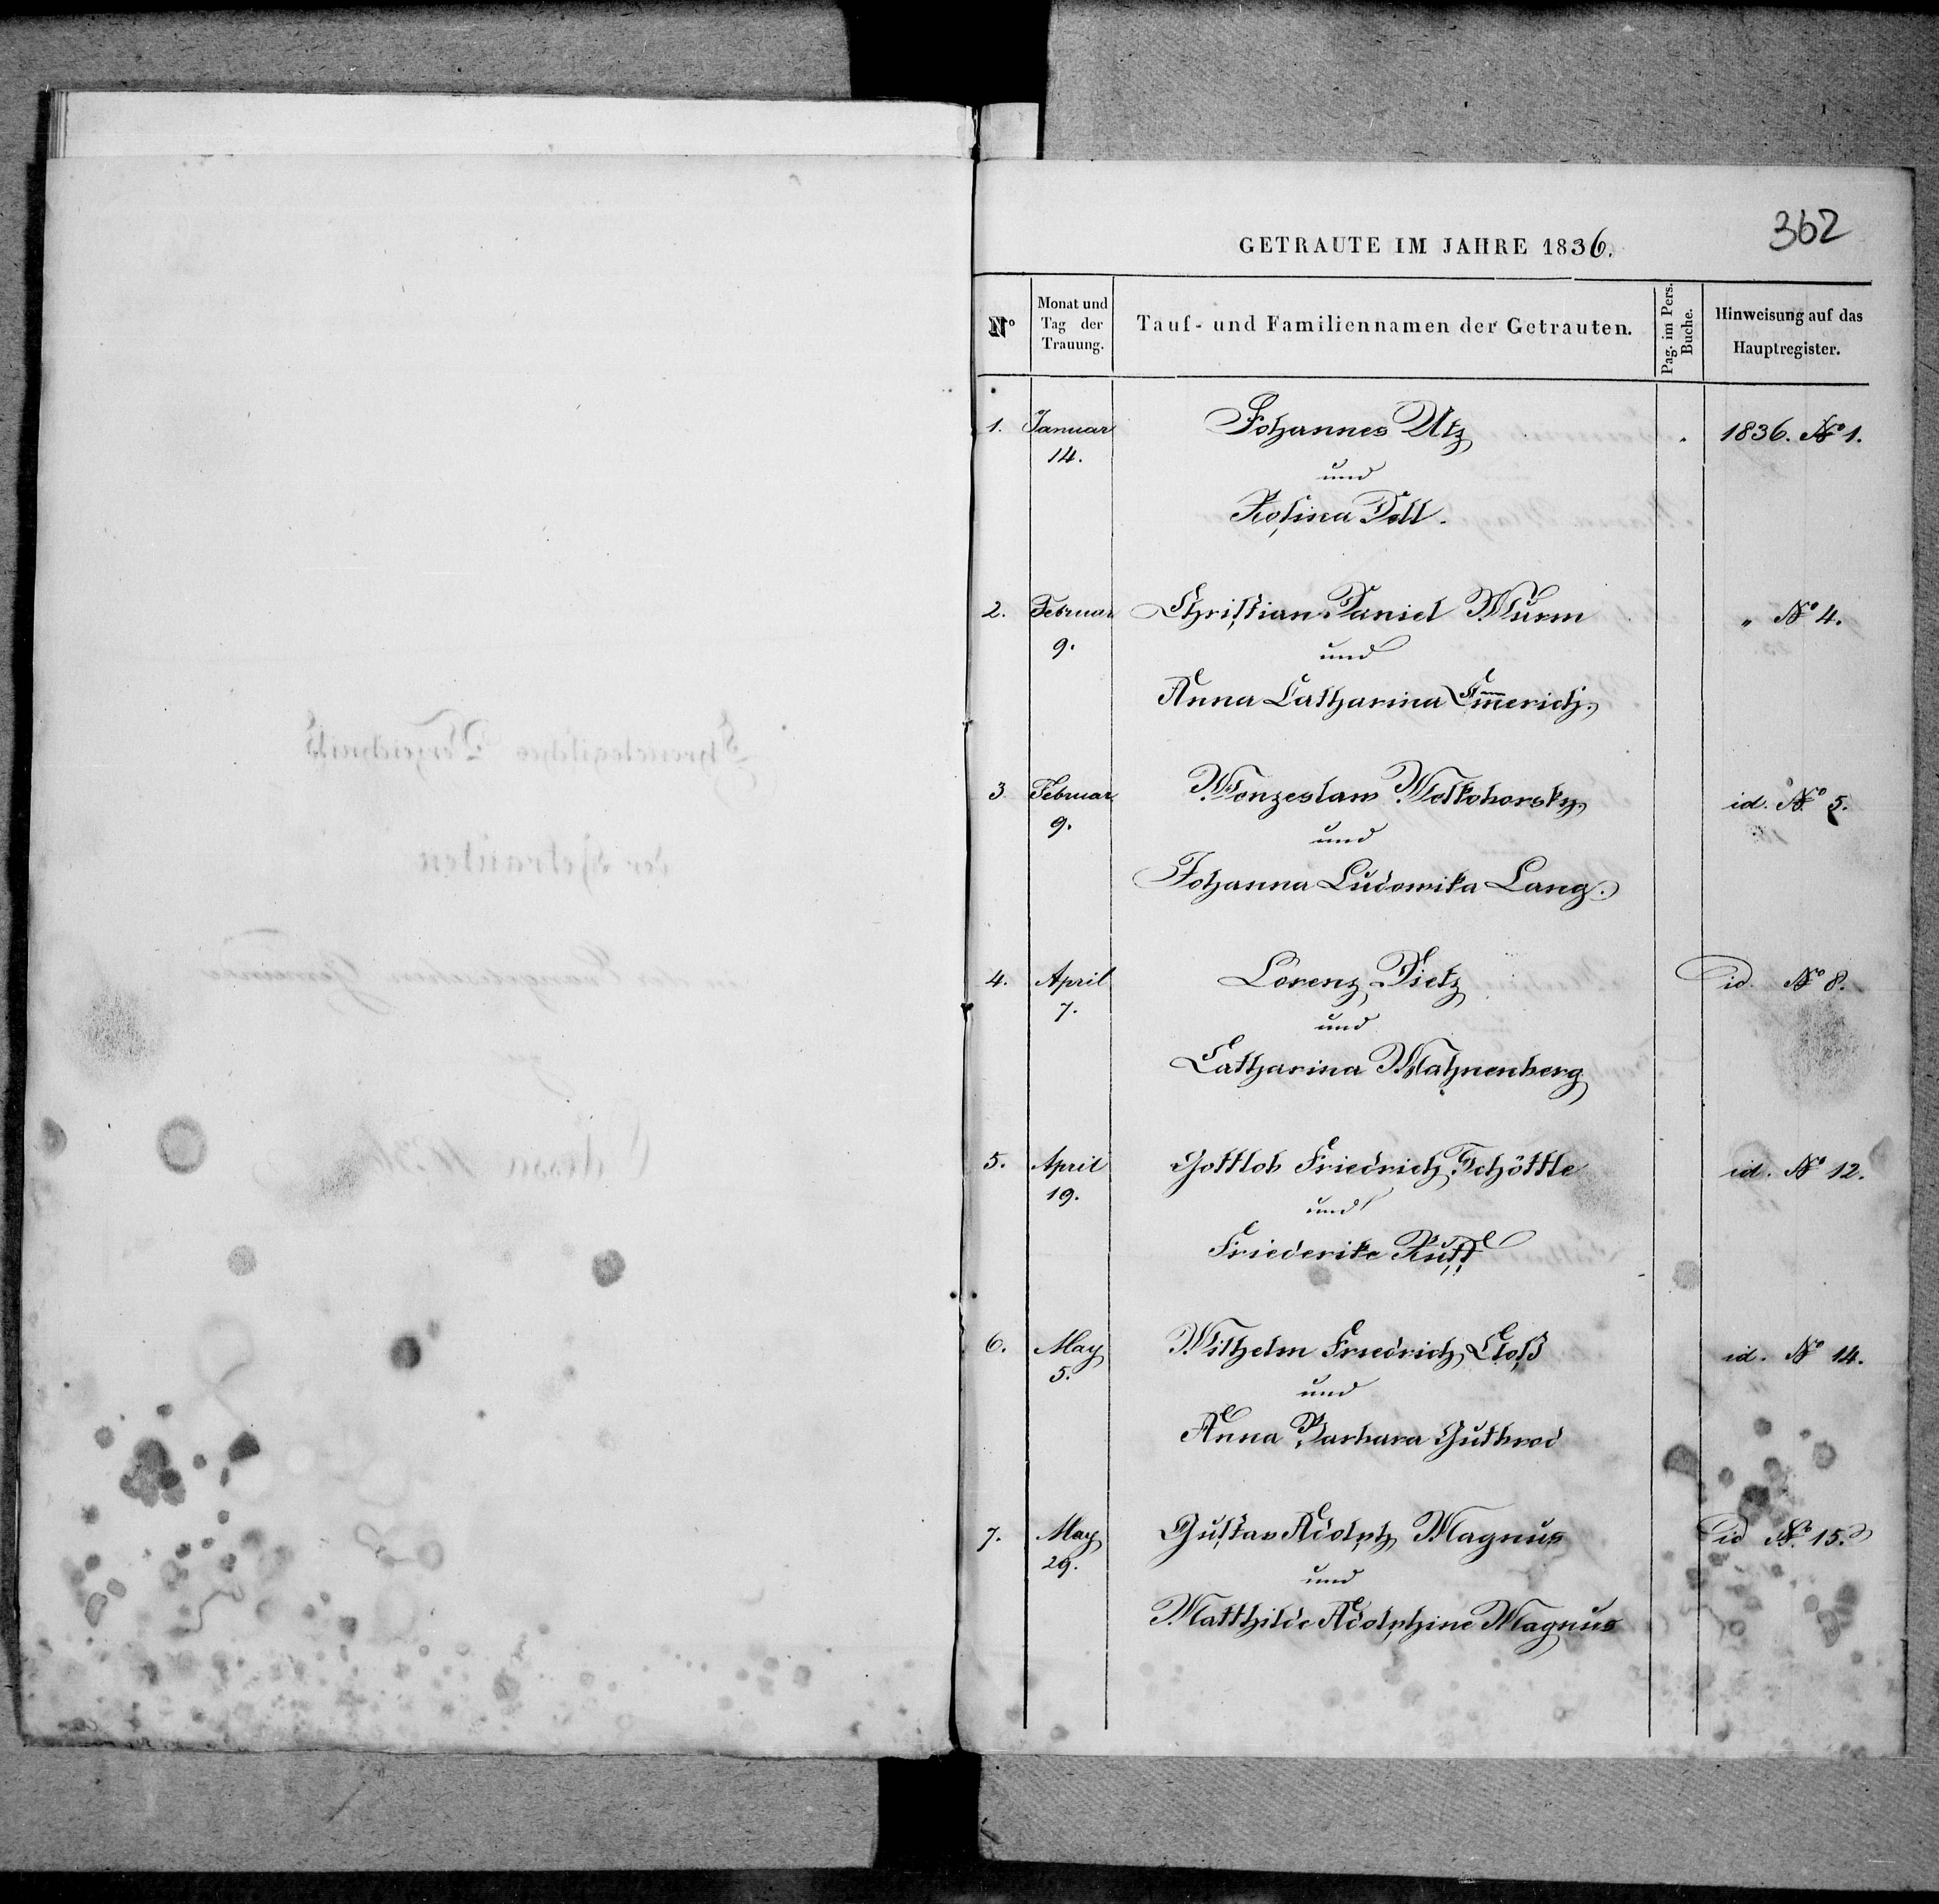 362
GETRAUTE IM JAHRE 1836.
No
Monat und Tag der Trauung.
Tauf- und Familiennamen der Getrauten.
Pag. im Pers. Buche.
Hinweisung auf das Hauptregister.
1. Januar Johannes Utz 1836. No 1.
14.
und
Rosina Doll.
2. Februar Christian Daniel Wurm " No 4.
9.
und
Anna Catharina Em̅erich.
3 Februar Wenzeslaw Welkohorsky id. No 5.
9.
und
Johanna Ludowika Lang.
4. April Lorenz Dietz id. No 8.
7.
und
Catharina Wahnenberg
5. April Gottlob Friedrich Schöttle id. No 12.
19.
und
Friederike Ruff
6. May Wilhelm Friedrich Cloß id. No 14.
5.
und
Anna Barbara Gutbrod
7. May Gustav Adolph Magnus id No. 15.
29.
und
Matthilde Adolphine Magnus